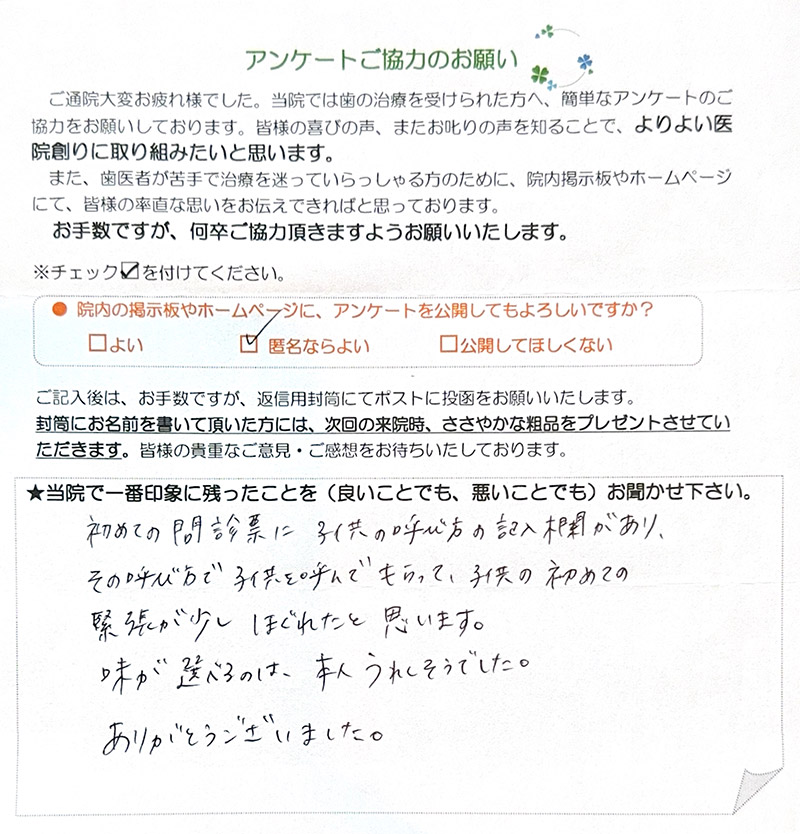 アンケートご協力のお願い
ご通院大変お疲れ様でした。当院では歯の治療を受けられた方へ、簡単なアンケートのご
協力をお願いしております。皆様の喜びの声、またお叱りの声を知ることで、よりよい医
院創りに取り組みたいと思います。
また、歯医者が苦手で治療を迷っていらっしゃる方のために、院内掲示板やホームページ
にて、皆様の率直な思いをお伝えできればと思っております。
お手数ですが、何卒ご協力頂きますようお願いいたします。
※チェック☑を付けてください。
● 院内の掲示板やホームページに、アンケートを公開してもよろしいですか？
□よい ☑匿名ならよい □公開してほしくない
ご記入後は、お手数ですが、返信用封筒にてポストに投函をお願いいたします。
封筒にお名前を書いて頂いた方には、次回の来院時、ささやかな粗品をプレゼントさせてい
ただきます。皆様の貴重なご意見・ご感想をお待ちいたしております。
★当院で一番印象に残ったことを（良いことでも、悪いことでも）お聞かせ下さい。
初めての問診票に子供の呼び方の記入欄があり、
その呼び方で子供を呼んでもらって、子供の初めての
緊張が少しほぐれたと思います。
味が選べるのは、本人うれしそうでした。
ありがとうございました。